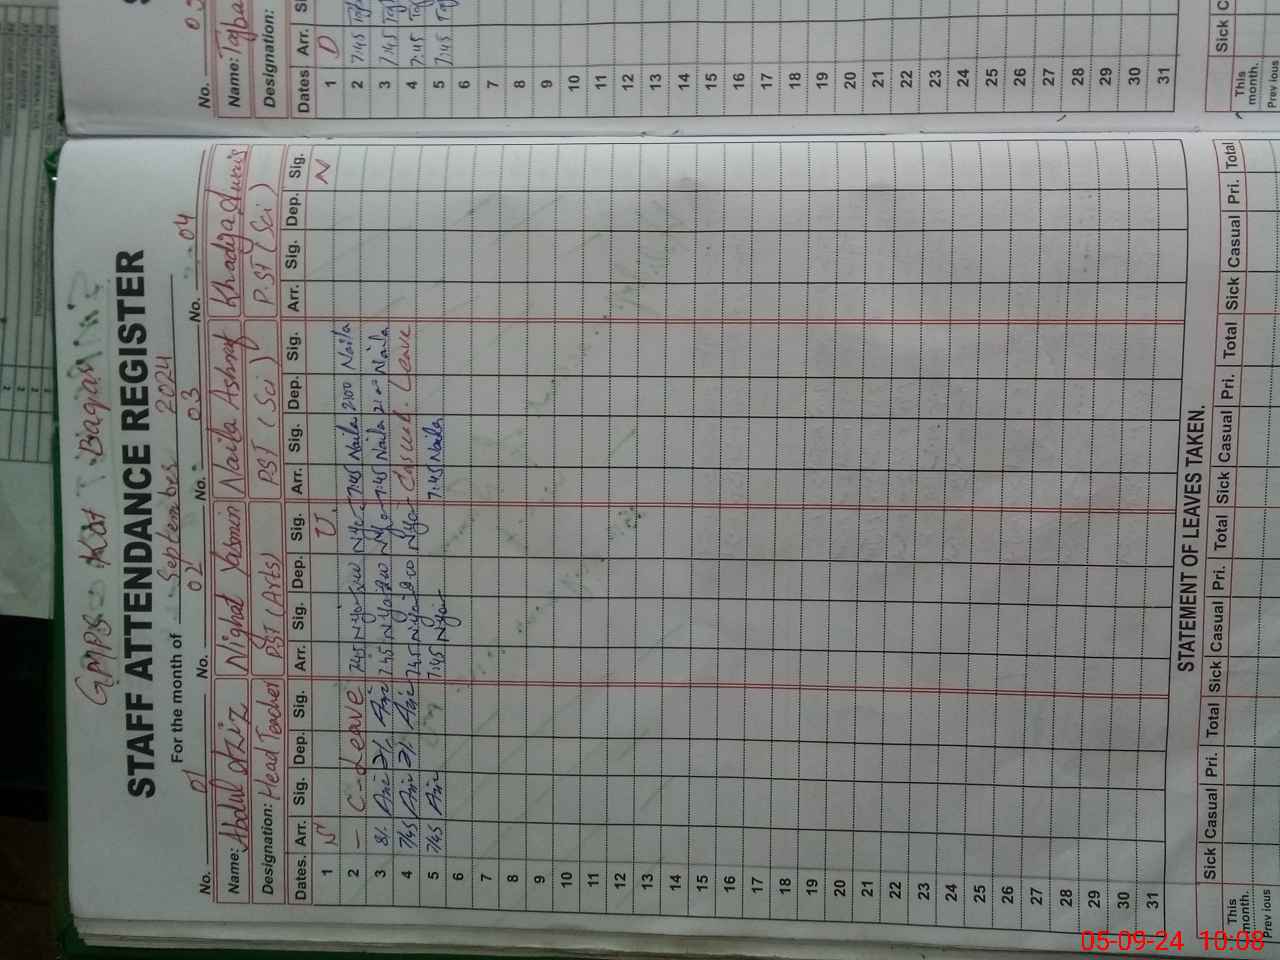 GMPS Kot Baganki
STAFF ATTENDANCE REGISTER
For the month of September 2024
No. 01 No. 02 No. 03 No. 04
Name: Abdul Aziz Nighat Yasmin Naila Ashraf Khadija Yunis
Designation: Head Teacher PST (Arts) PST (Sci) P.ST (Sci)
Dates. Arr. Sig. Dep. Sig. Arr. Sig. Dep. Sig. Arr. Sig. Dep. Sig. Arr. Sig. Dep. Sig.
1 S U N
2 — C-Leave 7:45 Nya 2:00 Nya 7:45 Naila 2:00 Naila
3 8/. Aziz 2/. Aziz 7:45 Nya 2:00 Nya 7:45 Naila 2:00 Naila
4 7/45 Aziz 2/. Aziz 7:45 Nya 2:00 Nya Casual Leave
5 7/45 Aziz 7:45 Nya 7:45 Naila
6
7
8
9
10
11
12
13
14
15
16
17
18
19
20
21
22
23
24
25
26
27
28
29
30
31
STATEMENT OF LEAVES TAKEN.
Sick Casual Pri. Total Sick Casual Pri. Total Sick Casual Pri. Total Sick Casual Pri. Total
This month.
Prev ious
No. 05
Name:
Designation:
Dates Arr.
1 D
2 7:45
3 7:45
4 7:45
5 7:45
6
7
8
9
10
11
12
13
14
15
16
17
18
19
20
21
22
23
24
25
26
27
28
29
30
31
Sick
This month.
Prev ious
05-09-24 10:08